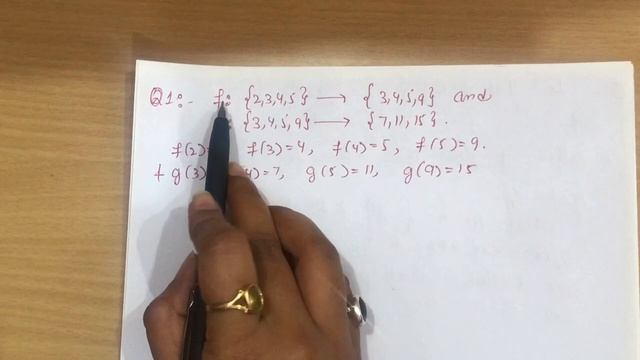 Q1:- f: {2,3,4,5} → {3,4,5,9} and
: {3,4,5,9} → {7,11,15}.
f(2)= f(3)=4, f(4)=5, f(5)=9.
+ g(3) 4)=7, g(5)=11, g(9)=15